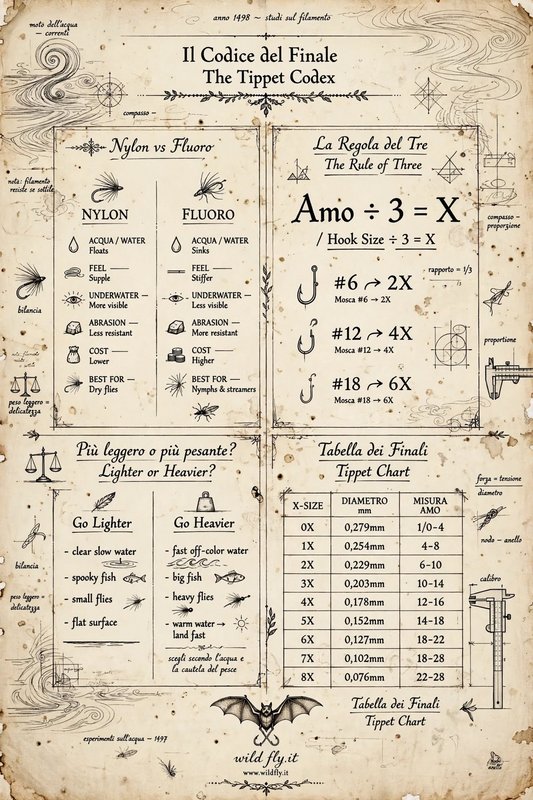 anno 1498 ~ studi sul filamento
moto dell'acqua
~ correnti
Il Codice del Finale
The Tippet Codex
compasso ~
Nylon vs Fluoro
nota: filamento
resiste se sottile
NYLON
ACQUA / WATER
Floats
FEEL
Supple
UNDERWATER —
More visible
ABRASION —
Less resistant
COST
Lower
BEST FOR —
Dry flies
FLUORO
ACQUA / WATER
Sinks
FEEL
Stiffer
UNDERWATER —
Less visible
ABRASION —
More resistant
COST
Higher
BEST FOR —
Nymphs & streamers
bilancia
peso leggero =
delicatezza
La Regola del Tre
The Rule of Three
Amo ÷ 3 = X
/ Hook Size ÷ 3 = X
#6 → 2X
Mosca #6 → 2X
rapporto = 1/3
#12 → 4X
Mosca #12 → 4X
#18 → 6X
Mosca #18 → 6X
compasso –
proporzione
proportione
Più leggero o più pesante?
Lighter or Heavier?
Go Lighter
- clear slow water
- spooky fish
- small flies
- flat surface
Go Heavier
- fast off-color water
- big fish
- heavy flies
- warm water →
land fast
scegli secondo l'acqua e
la cautela del pesce
bilancia
peso leggero =
delicatezza
Tabella dei Finali
Tippet Chart
X-SIZE DIAMETRO mm MISURA AMO
0X 0,279mm 1/0–4
1X 0,254mm 4–8
2X 0,229mm 6–10
3X 0,203mm 10–14
4X 0,178mm 12–16
5X 0,152mm 14–18
6X 0,127mm 18–22
7X 0,102mm 18–28
8X 0,076mm 22–28
Tabella dei Finali
Tippet Chart
forza = tensione
diametro
nodo – anello
calibro
esperimenti sull'acqua ~ 1497
wild fly.it
www.wildfly.it